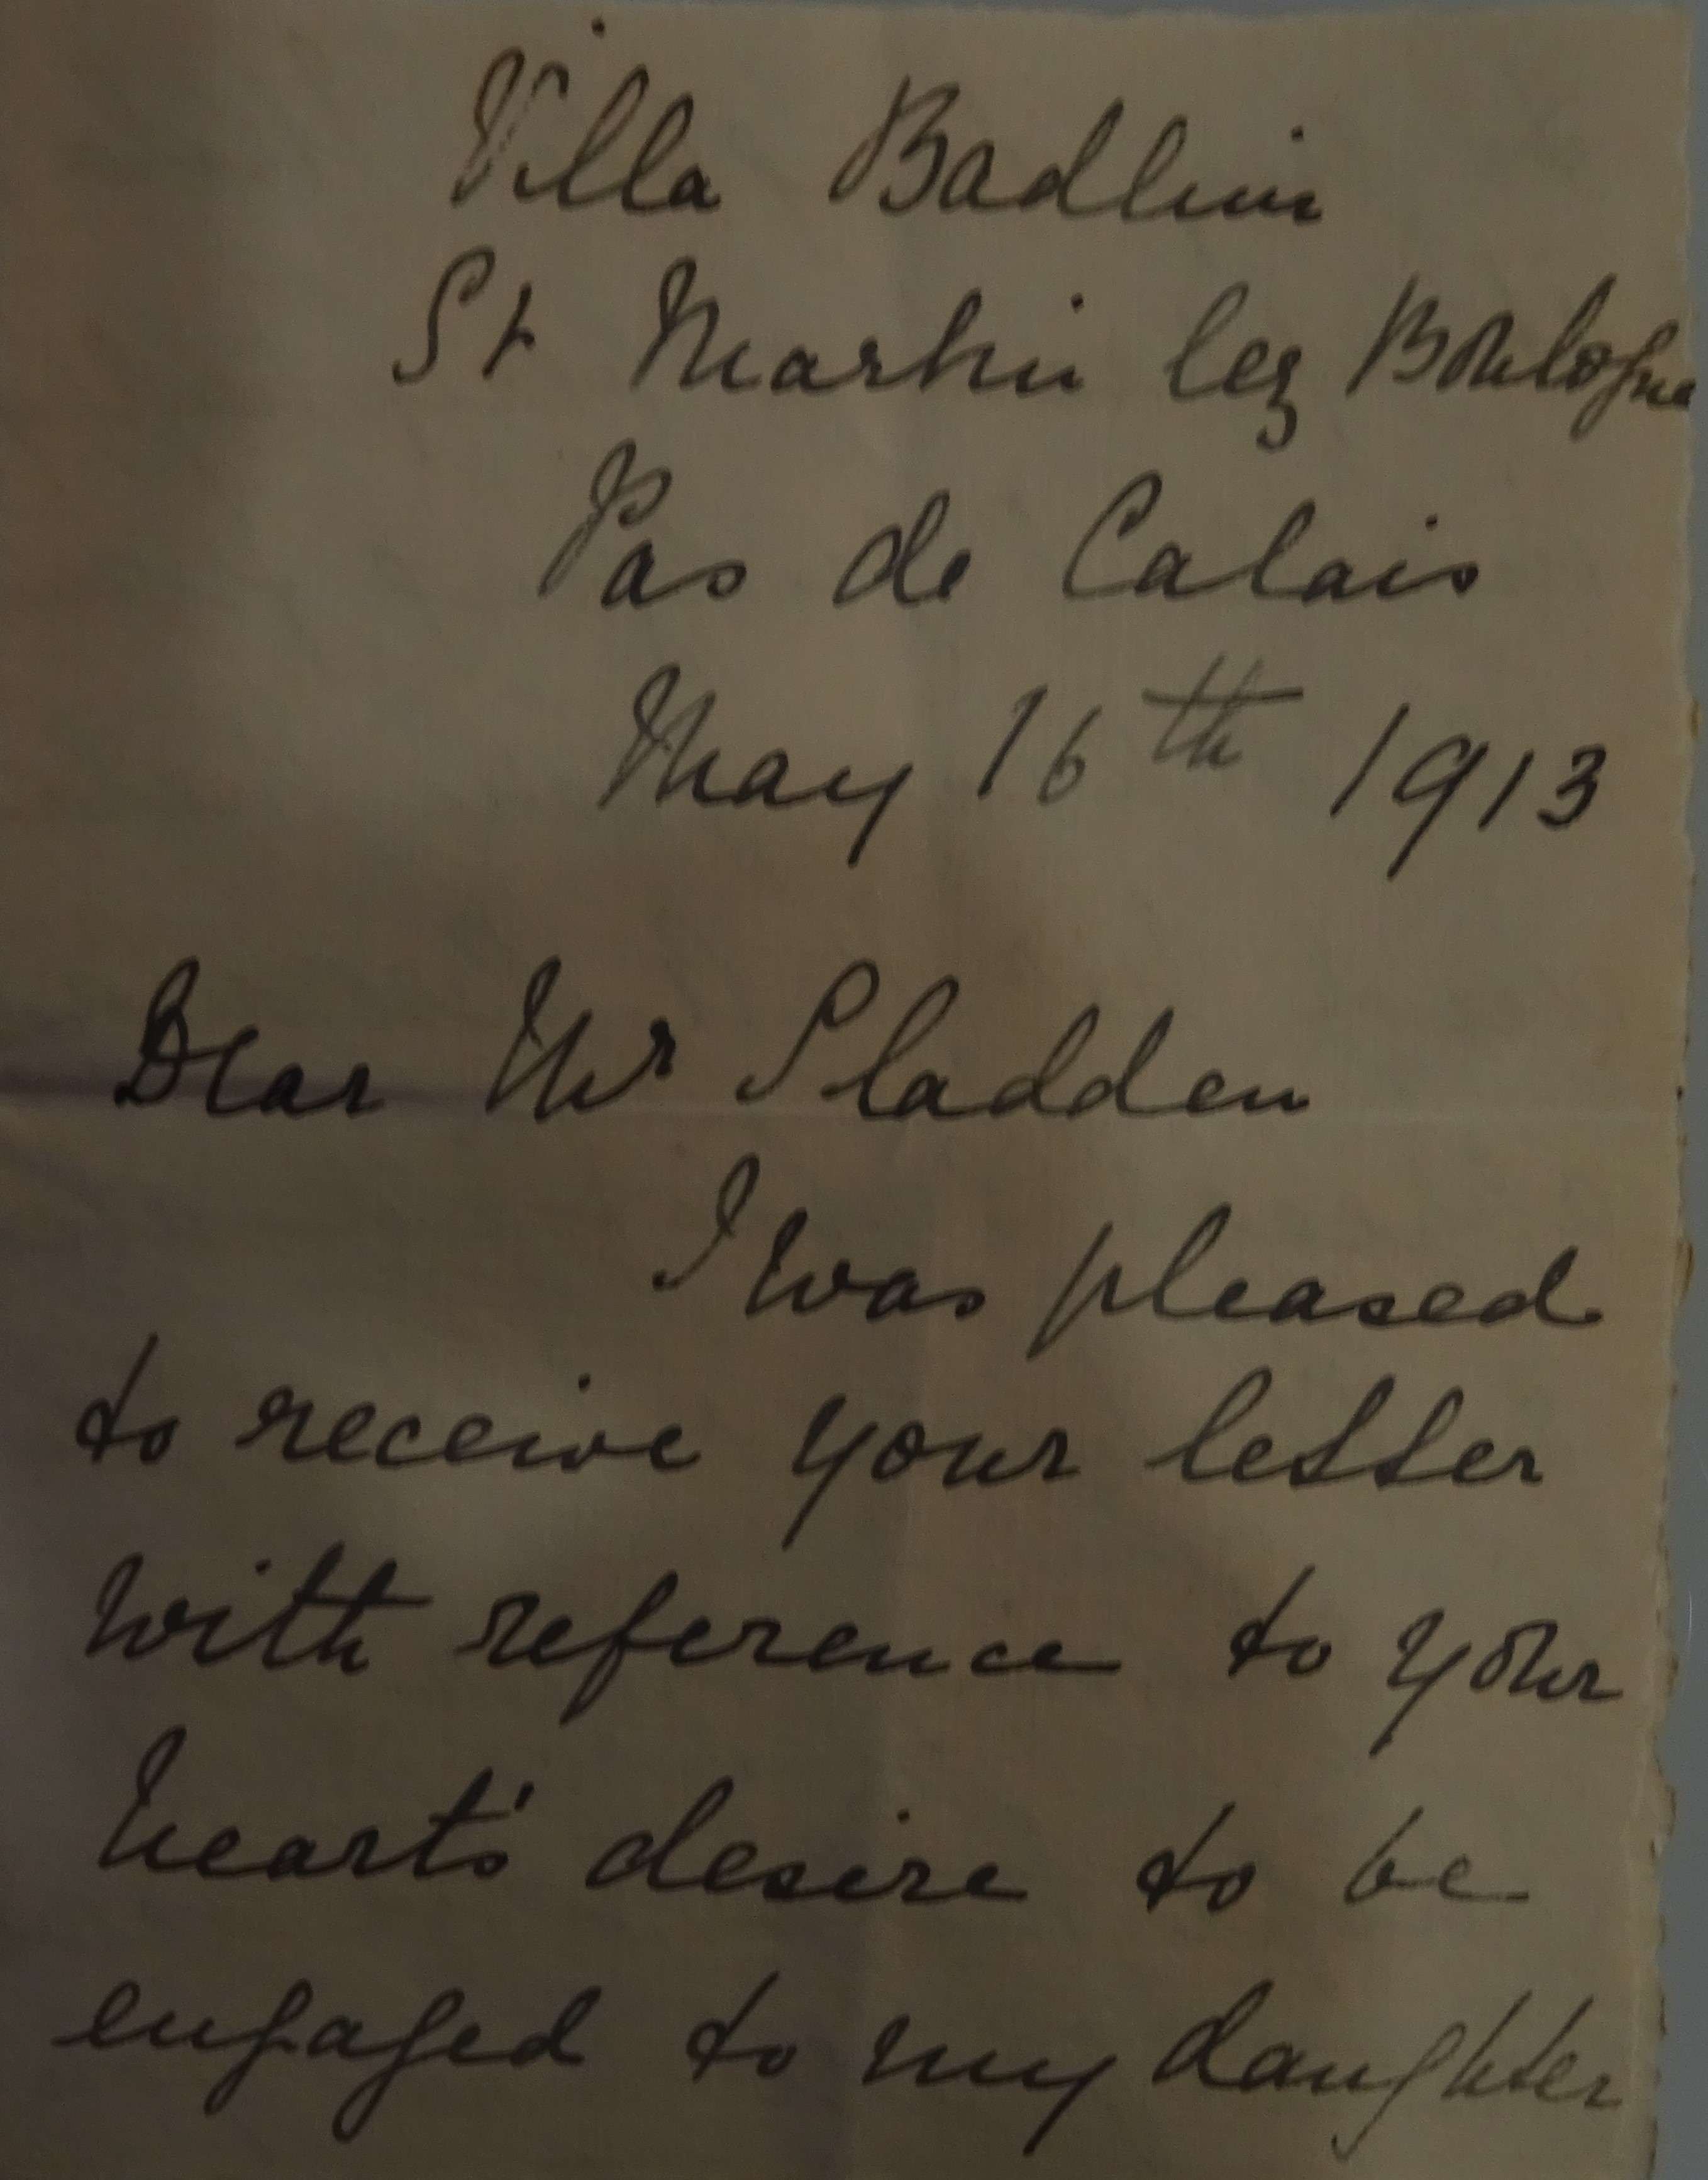 Villa Badlini
St Martin lez Boulogne
Pas de Calais
May 16th 1913
Dear Mr Sladden
I was pleased
to receive your letter
with reference to your
heart's desire to be
engaged to my daughter